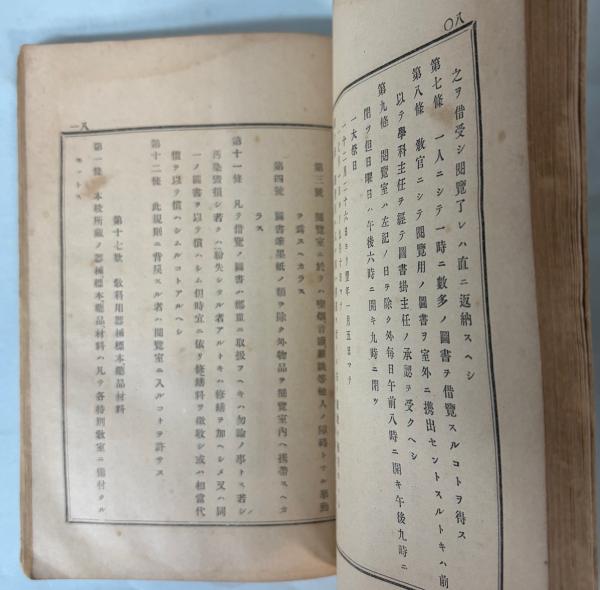 八〇
之ヲ借受シ閲覽了レハ直ニ返納スヘシ
第七條 一人ニシテ一時ニ數多ノ圖書ヲ借覽スルコトヲ得ス
第八條 敎官ニシテ閲覽用ノ圖書ヲ室外ニ携出セントスルトキハ前
以テ學科主任ヲ經テ圖書掛主任ノ承認ヲ受クヘシ
第九條 閲覽室ハ左記ノ日ヲ除ク外每日午前八時ニ開キ午後九時ニ
閉ツ但日曜日ハ午後六時ニ開キ九時ニ閉ツ
一大祭日
一十二月二十六日ヨリ翌年一月五日マテ
八一
第三號 閲覽室ニ於テハ喫烟音讀雜談等他人ノ障碍トナル擧動
ヲ爲スヘカラス
第四號 圖書筆墨紙ノ類ヲ除ク外物品ヲ閲覽室內ヘ携帶スヘカ
ラス
第十一條 凡テ借覽ノ圖書ハ鄭重ニ取扱フヘキハ勿論ノ事トス若シ
汚染毀損シ者クハ紛失シタル者アルトキハ修繕ヲ加ヘシメ又ハ同
一ノ圖書ヲ以テ償ハシム但時宜ニ依リ修繕料ヲ徵收シ或ハ相當代
價ヲ以テ償ハシムルコトアルヘシ
第十二條 此規則ニ背戾スル者ハ閲覽室ニ入ルコトヲ許サス
第十七號 敎科用器械標本藥品材料
第一條 本校所藏ノ器械標本藥品材料ハ凡テ各特別敎室ニ備付タル
モノトス